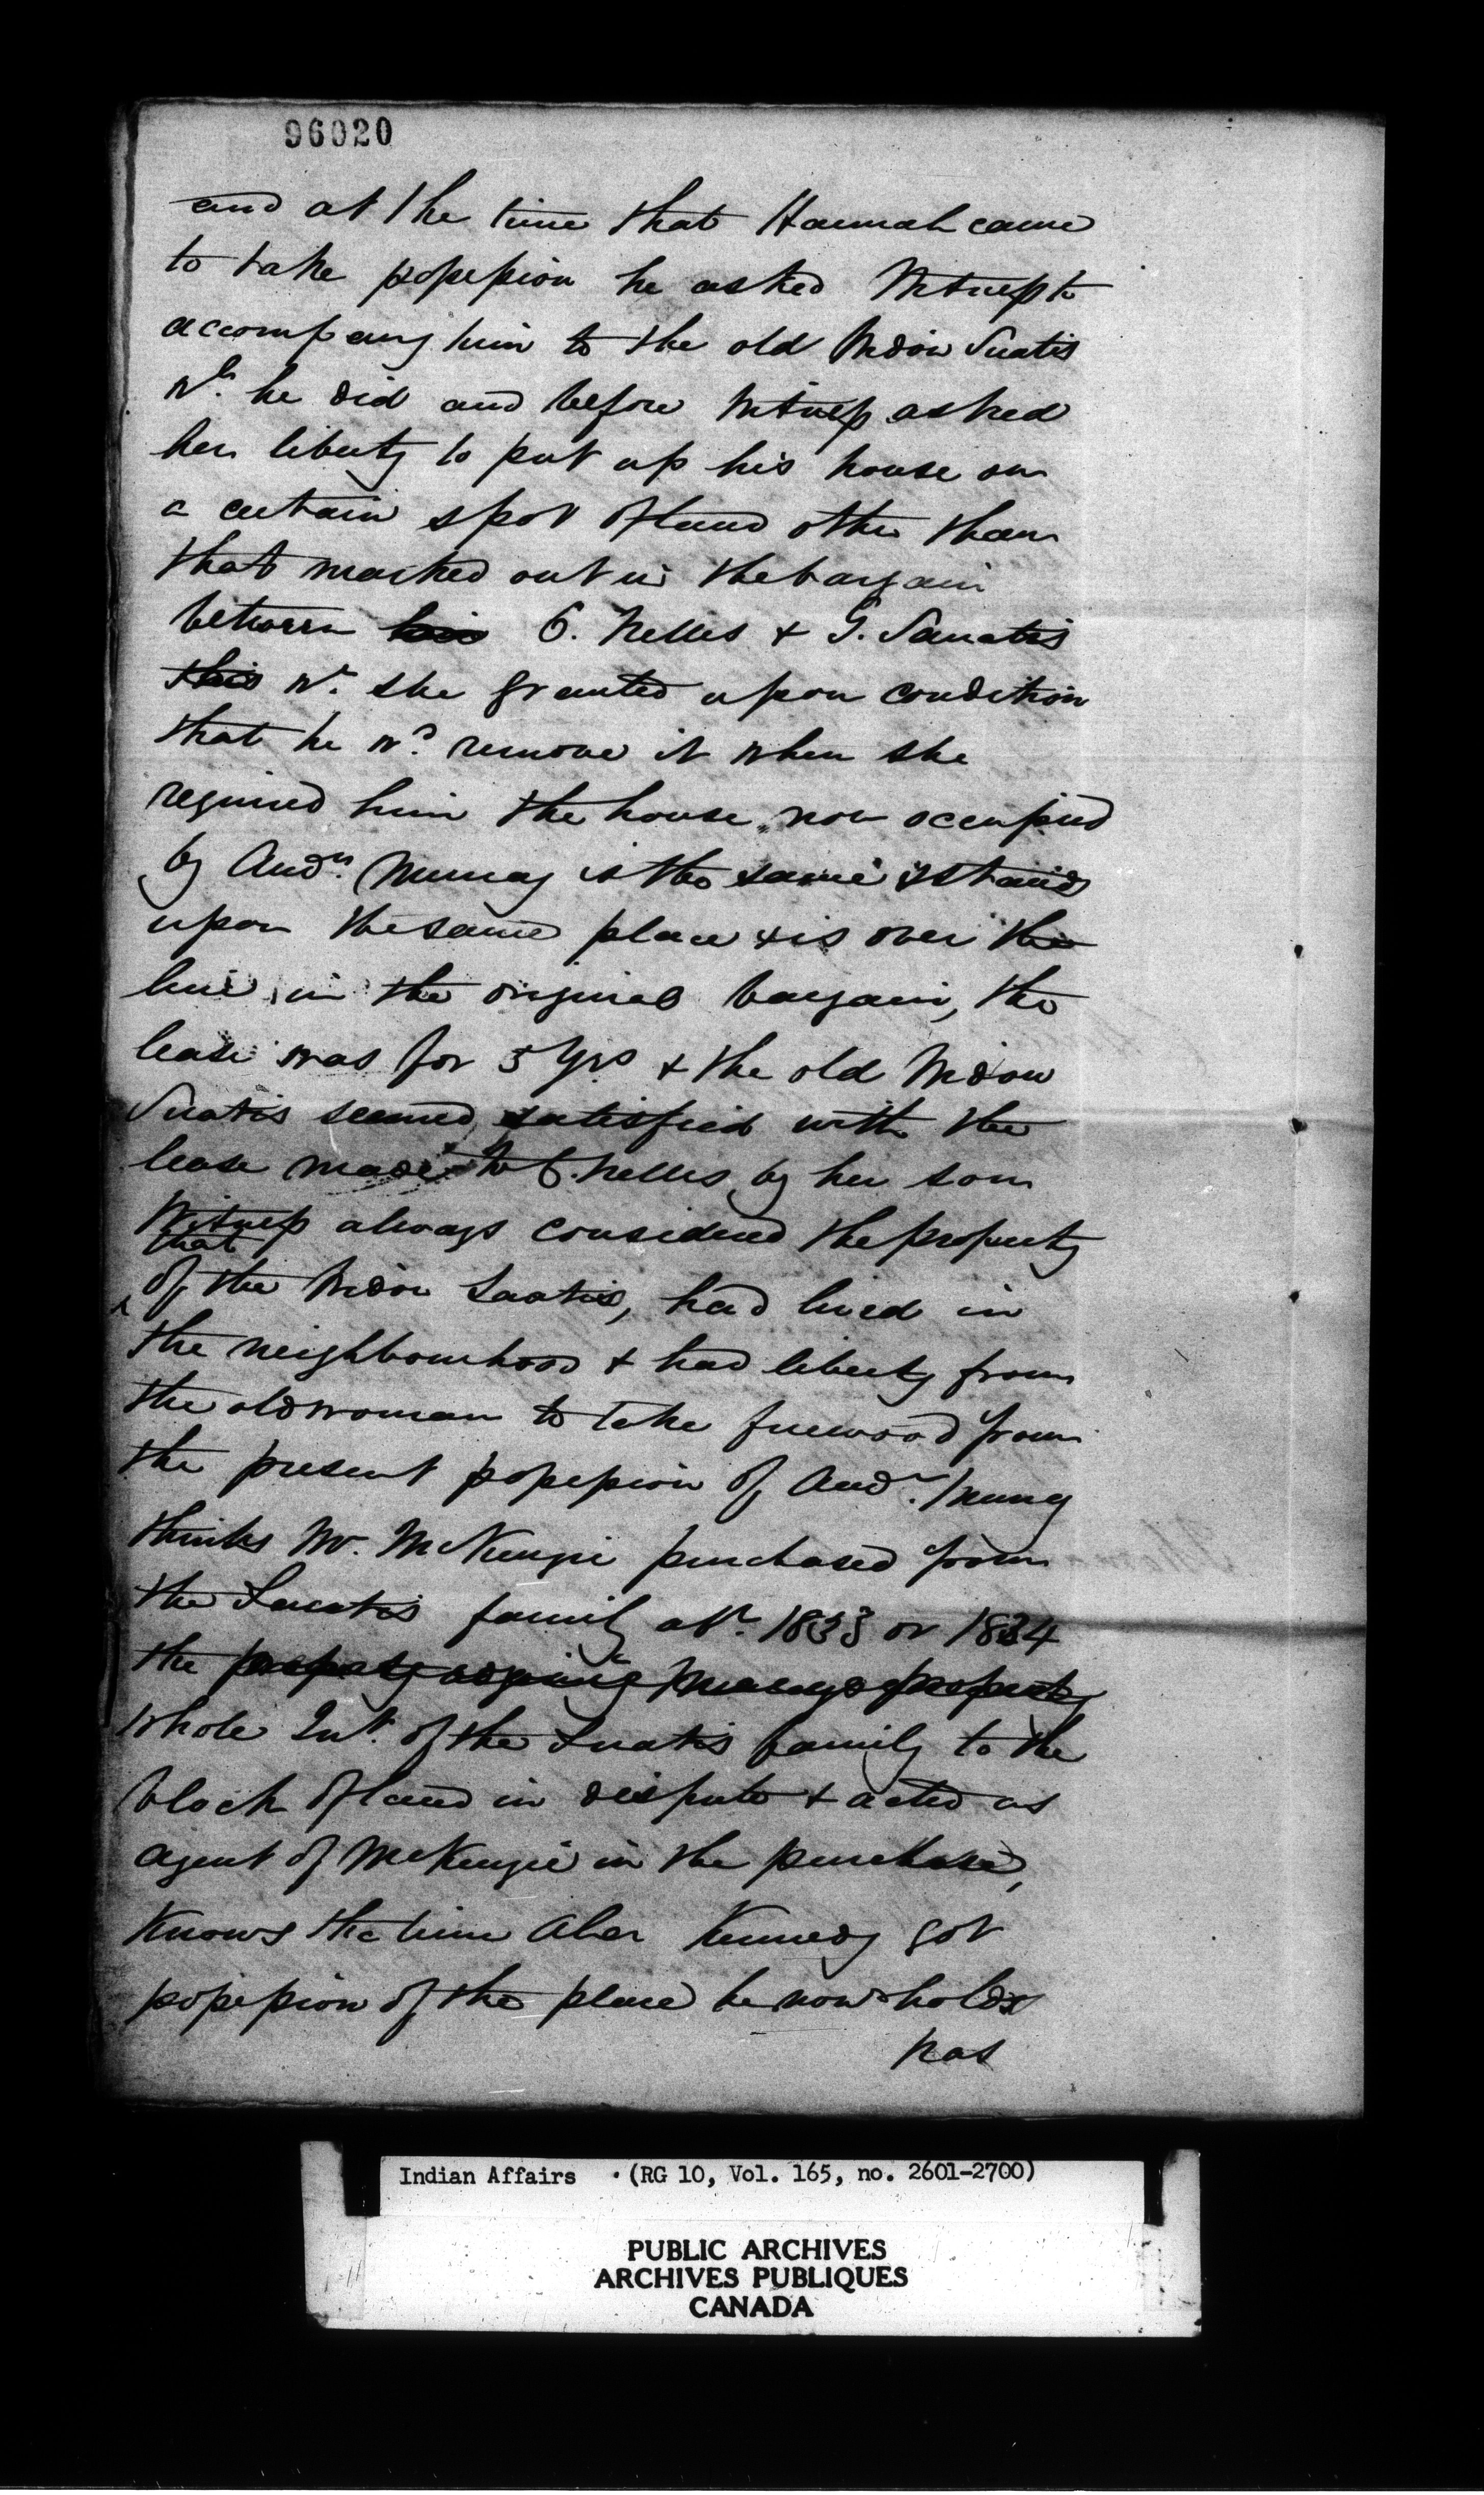 96020
and at the time that Hannah came
to take possession he asked Witness to
accompany him to the old Widow Suatis
wh. he did and before Witness asked
her liberty to put up his house on
a certain spot of land other than
that marked out in the bargain
between his O. Nelles & G. Sauatis
this wh. she granted upon condition
that he wd. remove it when she
required him the house now occupied
by Andw. Murray is the same & stands
upon the same place & is over the
line in the original bargain, the
lease was for 5 Yrs & the old Widow
Suatis seemed satisfied with the
lease made to O. Nelles by her son
Witness always considered the property
that
of the Widow Saatis, had lived in
the neighbourhood & had liberty from
the old woman to take firewood from
the present possession of Andw. Murray
thinks Mr. McKenzie purchased from
the Sauatis family abt. 1833 or 1834
the property adjoining Murrays property
whole Int. of the Suatis family to the
block of land in dispute & acted as
agent of McKenzie in the purchase,
Knows the time Alex Kennedy got
possession of the place he now holds
was
Indian Affairs (RG 10, Vol. 165, no. 2601-2700)
PUBLIC ARCHIVES
ARCHIVES PUBLIQUES
CANADA